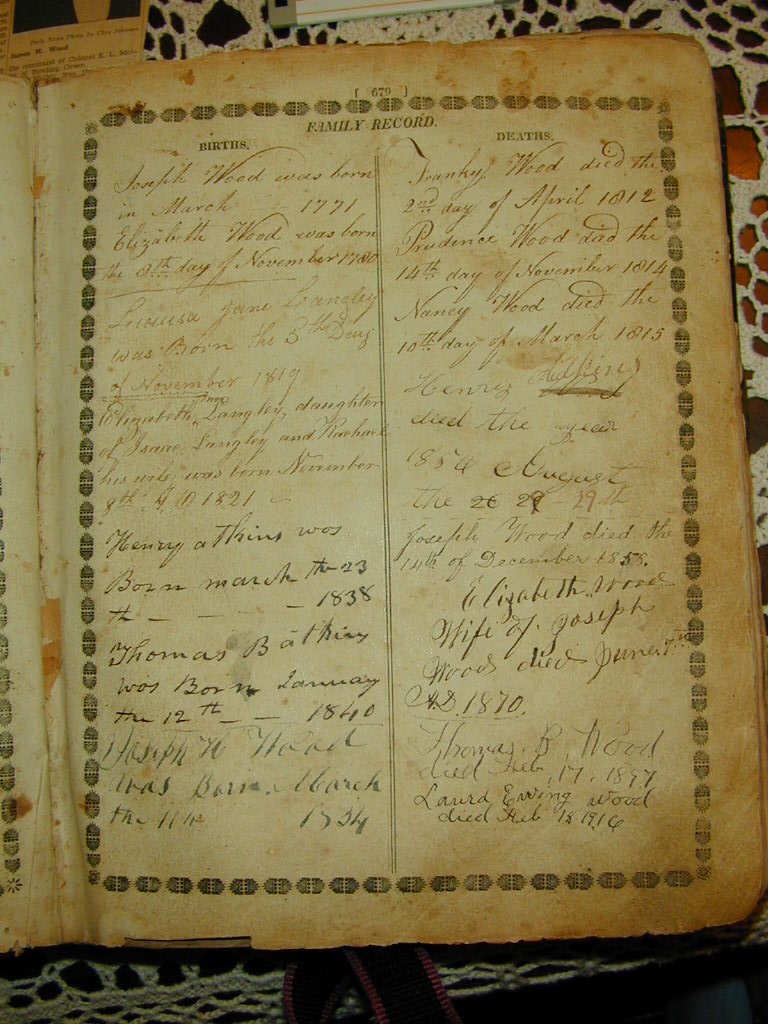 Daily News Photo by Chea Johnson
James W. Wood
the command of Colonel E. L. Mot-
of Bowling Green.
[ 679 ]
FAMILY RECORD.
BIRTHS.
Joseph Wood was born
in March - 1771
Elizabeth Wood was born
the 8th day of November 1780
Louusa Jane Langley
was Born the 5th Day
of November 1819
Elizabeth Ann Langley, daughter
of Isaac Langley and Rachael
his wife, was born November
8th A D 1821
Henry atkins was
Born march the 23
th - - - 1838
Thomas B atkins
was Born January
the 12th - - 1840
Joseph W Wood
was Born March
the 11th 1834
DEATHS.
Franky Wood died the
2nd day of April 1812
Prudence Wood died the
14th day of November 1814
Nancy Wood died the
10th day of March 1815
Henry
died the year
1856 August
the 26 29 - 29th
Joseph Wood died the
14th of December 1858.
Elizabeth Wood
Wife of Joseph
Wood died June 7th
AD. 1870.
Thomas B Wood
died Feb. 17, 1897
Laura Ewing Wood
died Feb 18 1916